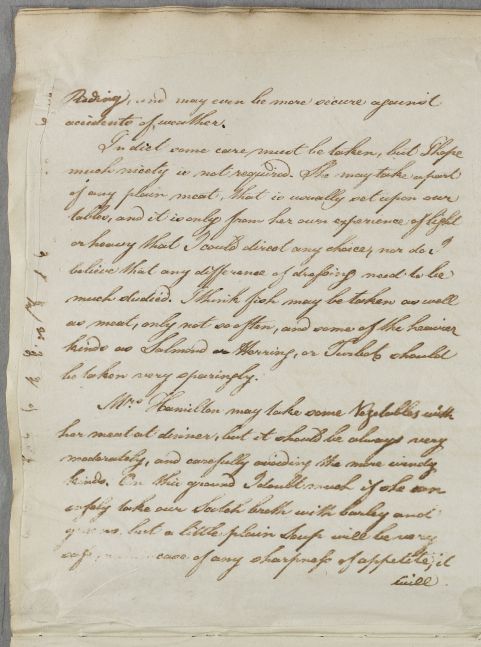 Riding, and may even be more secure against
accidents of weather.
In diet some care must be taken, but I hope
much nicety is not required. She may take a part
of any plain meat, that is usually set upon our
tables, and it is only from her own experience of light
or heavy that I could direct any choice, nor do I
believe that any difference of dressing need to be
much studied. I think fish may be taken as well
as meat, only not so often, and some of the heavier
kinds as Salmond or Herring, or Turbot should
be taken very sparingly.
Mrs Hamilton may take some Vegetables with
her meat at dinner, but it should be always very
moderately, and carefully avoiding the more windy
kinds. On this ground I doubt much if she can
safely take our Scotch broth with barley and
greens, but a little plain Soup will be very
safe, case of any sharpness of appetite, it
will